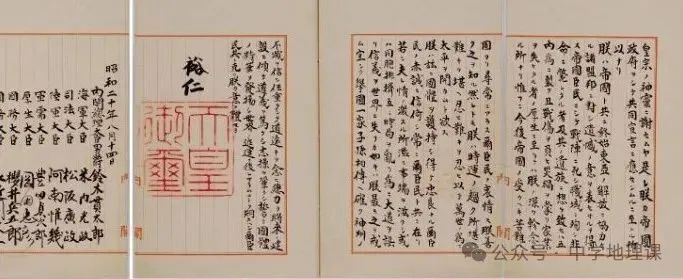 皇宗ノ神靈ニ謝セムヤ是レ朕カ帝國
政府ヲシテ共同宣言ニ應セシムルニ至レル
所以ナリ
朕ハ帝國ト共ニ終始東亞ノ解放ニ協力セ
ル諸盟邦ニ對シ遺憾ノ意ヲ表セサルヲ得ス
帝國臣民ニシテ戰陣ニ死シ職域ニ殉シ非
命ニ斃レタル者及其ノ遺族ニ想ヲ致セハ五
内爲ニ裂ク且戰傷ヲ負ヒ災禍ヲ蒙リ家業
ヲ失ヒタル者ノ厚生ニ至リテハ朕ノ深ク軫念ス
ル所ナリ惟フニ今後帝國ノ受クヘキ苦難ハ
固ヨリ尋常ニアラス爾臣民ノ衷情モ朕善
ク之ヲ知ル然レトモ朕ハ時運ノ趨ク所堪ヘ
難キヲ堪ヘ忍ヒ難キヲ忍ヒ以テ萬世ノ爲ニ
太平ヲ開カムト欲ス
朕ハ茲ニ國體ヲ護持シ得テ忠良ナル爾臣
民ノ赤誠ニ信倚シ常ニ爾臣民ト共ニ在リ
若シ夫レ情ノ激スル所濫ニ事端ヲ滋クシ或
ハ同胞排擠互ニ時局ヲ亂リ爲ニ大道ヲ誤
リ信義ヲ世界ニ失フカ如キハ朕最モ之ヲ戒
ム宜シク擧國一家子孫相傳ヘ確ク神州ノ
内閣
不滅ヲ信シ任重クシテ道遠キヲ念ヒ總力ヲ將來ノ建
設ニ傾ケ道義ヲ篤クシ志操ヲ鞏クシ誓テ國體
ノ精華ヲ發揚シ世界ノ進運ニ後レサラムコトヲ期スヘシ爾臣
民其レ克ク朕カ意ヲ體セヨ
裕仁
天皇御璽
内閣
昭和二十年八月十四日
内閣總理大臣男爵鈴木貫太郎
海軍大臣 米内光政
司法大臣 松阪廣政
陸軍大臣 阿南惟幾
軍需大臣
大臣 岡田忠彦
國務大臣 櫻井兵五郎
公众号·中学地理课